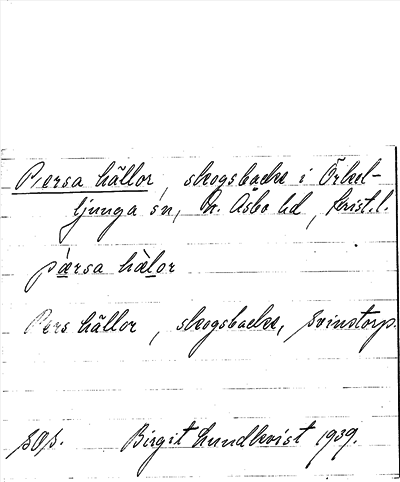 Persa hällor, skogsbacke i Örkel-
ljunga sn, N. Åsbo hd, Krist. l.
pæ̀rsa hæ̀lor
Pers hällor, skogsbacke, Svinstorp.
SOS. Birgit Lundkvist 1939.